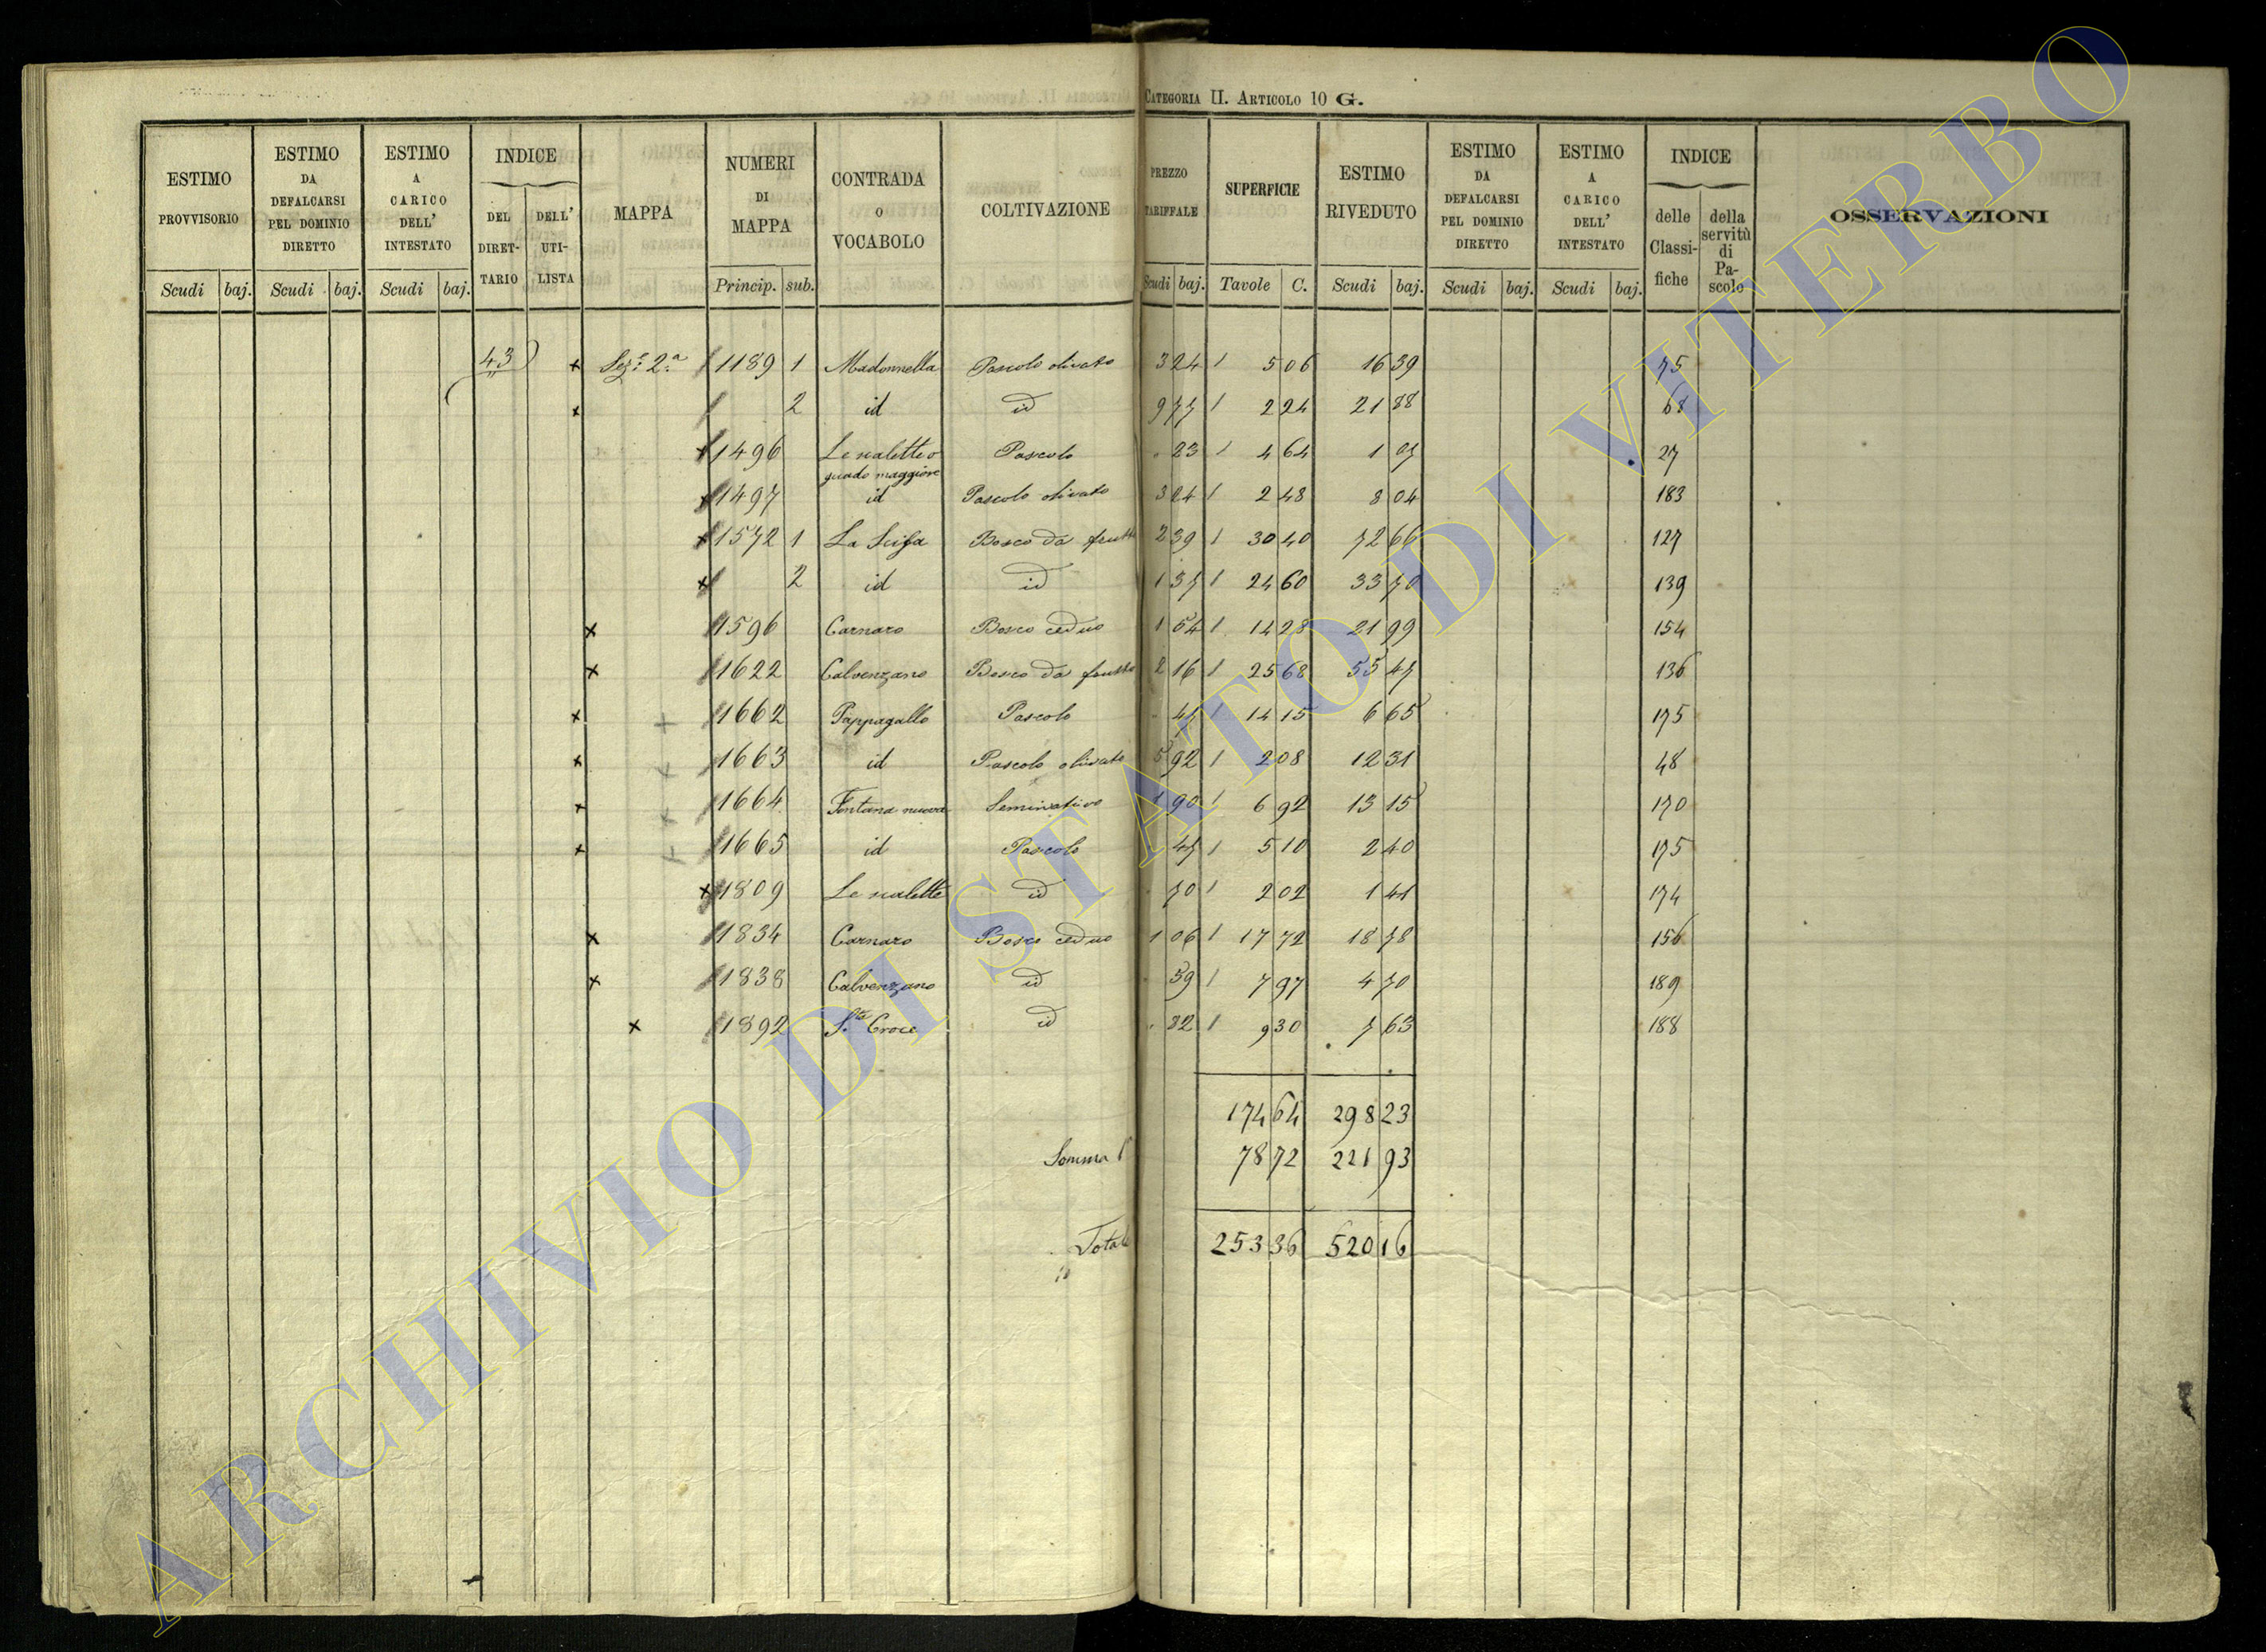 CATEGORIA II. ARTICOLO 10 G.
ESTIMO PROVVISORIO Scudi baj.
ESTIMO DA DEFALCARSI PEL DOMINIO DIRETTO Scudi baj.
ESTIMO A CARICO DELL' INTESTATO Scudi baj.
INDICE DEL DIRETTARIO DELL' UTILISTA
MAPPA
NUMERI DI MAPPA Princip. sub.
CONTRADA O VOCABOLO
COLTIVAZIONE
PREZZO TARIFFALE Scudi baj.
SUPERFICIE Tavole C.
ESTIMO RIVEDUTO Scudi baj.
ESTIMO DA DEFALCARSI PEL DOMINIO DIRETTO Scudi baj.
ESTIMO A CARICO DELL' INTESTATO Scudi baj.
INDICE delle Classifiche della servitù di Pascolo
OSSERVAZIONI
43 x Sez.e 2.a 1189 1 Madonnella Pascolo olivato 3 24 5 06 16 39 75
x 2 id id 9 77 2 24 21 88 68
x 1496 Le scalette o guado maggiore Pascolo 23 4 64 1 07 27
x 1497 id Pascolo olivato 3 24 2 48 8 04 183
x 1572 1 La Scifa Bosco da frutto 2 39 30 40 72 66 127
x 2 id id 1 37 24 60 33 70 139
x 1596 Carnaro Bosco ceduo 1 54 14 28 21 99 154
x 1622 Calvenzano Bosco da frutto 2 16 25 68 55 47 136
x 1662 Pappagallo Pascolo 47 14 15 6 65 175
x 1663 id Pascolo olivato 5 92 2 08 12 31 48
x 1664 Fontana nuova Seminativo 1 90 6 92 13 15 170
x 1665 id Pascolo 47 5 10 2 40 175
x 1809 Le scalette id 70 2 02 1 41 174
x 1834 Carnaro Bosco ceduo 1 06 17 72 18 78 156
x 1838 Calvenzano id 59 7 97 4 70 189
x 1892 S.ta Croce id 82 9 30 7 63 188
174 64 298 23
Somma 78 72 221 93
Totale 253 36 520 16
ARCHIVIO DI STATO DI VITERBO